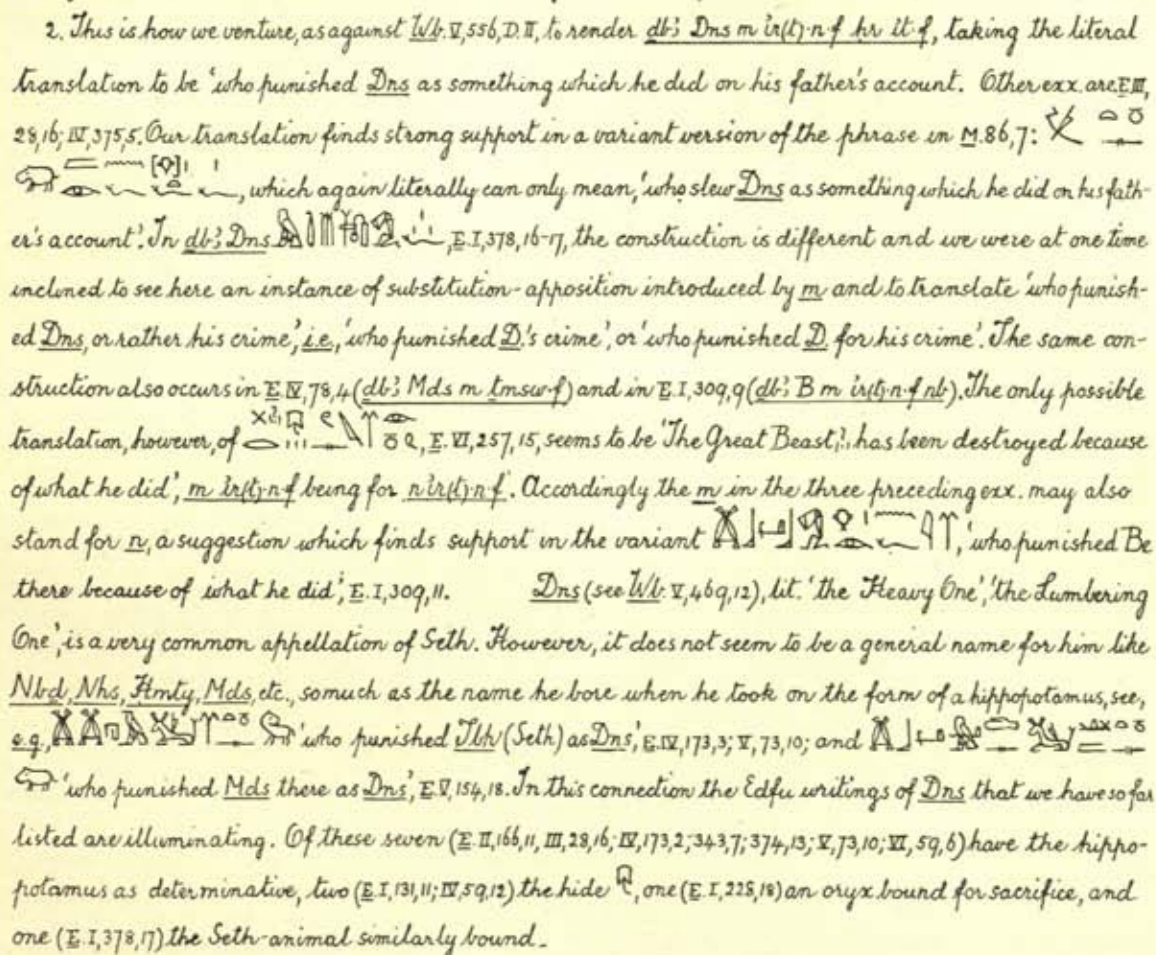 2. This is how we venture, as against Wb. V, 556, D. II, to render dbꜣ Dns m ir(t)·n·f ḥr it·f, taking the literal
translation to be 'who punished Dns as something which he did on his father's account. Other exx. are E. III,
28,16; IV, 375,5. Our translation finds strong support in a variant version of the phrase in M. 86,7:
, which again literally can only mean, 'who slew Dns as something which he did on his fath-
er's account'. In dbꜣ Dns , E. I, 378, 16-17, the construction is different and we were at one time
inclined to see here an instance of substitution-apposition introduced by m and to translate 'who punish-
ed Dns, or rather his crime', i.e., 'who punished D.'s crime', or 'who punished D. for his crime'. The same con-
struction also occurs in E. IV, 78,4 (dbꜣ Mds m tmsw·f) and in E. I, 309, 9 (dbꜣ B m ir(t)·n·f nb). The only possible
translation, however, of , E. VI, 257, 15, seems to be 'The Great Beast, has been destroyed because
of what he did', m ir(t)·n·f being for n ir(t)·n·f. Accordingly the m in the three preceding exx. may also
stand for n, a suggestion which finds support in the variant , 'who punished Be
there because of what he did', E. I, 309, 11. Dns (see Wb. V, 469, 12), lit. 'the Heavy One', 'the Lumbering
One', is a very common appellation of Seth. However, it does not seem to be a general name for him like
Nbd, Nhs, Ḥmty, Mds, etc., so much as the name he bore when he took on the form of a hippopotamus, see,
e.g., 'who punished Tbh (Seth) as Dns', E. IV, 173, 3; V, 73, 10; and
'who punished Mds there as Dns', E. V, 154, 18. In this connection the Edfu writings of Dns that we have so far
listed are illuminating. Of these seven (E. II, 166, 11, III, 28, 16; IV, 173, 2; 343, 7; 374, 13; V, 73, 10; VI, 59, 6) have the hippo-
potamus as determinative, two (E. I, 131, 11; IV, 59, 12) the hide , one (E. I, 228, 18) an oryx bound for sacrifice, and
one (E. I, 378, 17) the Seth-animal similarly bound.